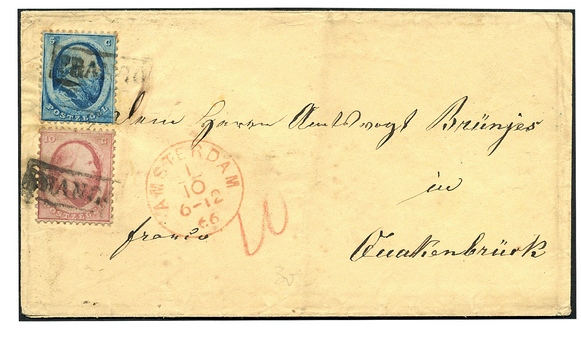 5 C
FRANCO
POSTZEGEL
dem Herrn Amtsvogt Brünjes
10 C
FRANCO
POSTZEGEL
AMSTERDAM
1
10
6-12
66
in
franco
Quakenbrück